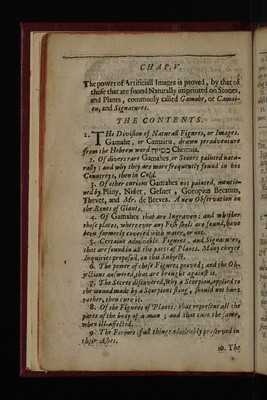 CHAP. V.
The power of Artificiall Images is proved, by that of
those that are found Naturally imprinted on Stones,
and Plants, commonly called Gamahe, or Camai-
eu, and Signatures.
THE CONTENTS.
1. THe Division of Naturall Figures, or Images.
Gamahe, or Camaieu, drawn peradventure
from the Hebrew word Chemaia.
2. Of divers rare Gamahes, or Stones painted natu-
rally: and why they are more frequently found in hot
Countreys, then in Cold.
3. Of other curious Gamahes not painted, mentio-
ned by Pliny, Nider, Gesner, Goropius Becanus,
Thevet, and Mr. de Breves. A new Observation in
the Bones of Giants.
4. Of Gamahes that are Engraven: and whether
those places, where ever any Fish shels are found, have
been formerly covered with water, or not.
5. Certaine admirable Figures, and Signatures,
that are found in all the parts of Plants. Many choyce
Inquiries proposed, on this Subject.
6. The power of these Figures proved; and the Ob-
jections answered, that are brought against it.
7. The Secret discovered, Why a Scorpion, applyed to
the wound made by a Scorpions sting, should not hurt
rather, then cure it.
8. Of the Figures of Plants, that represent all the
parts of the body of a man; and that cure the same,
when ill-affected.
9. The Formes of all things admirably preserved in
their ashes.
10. The